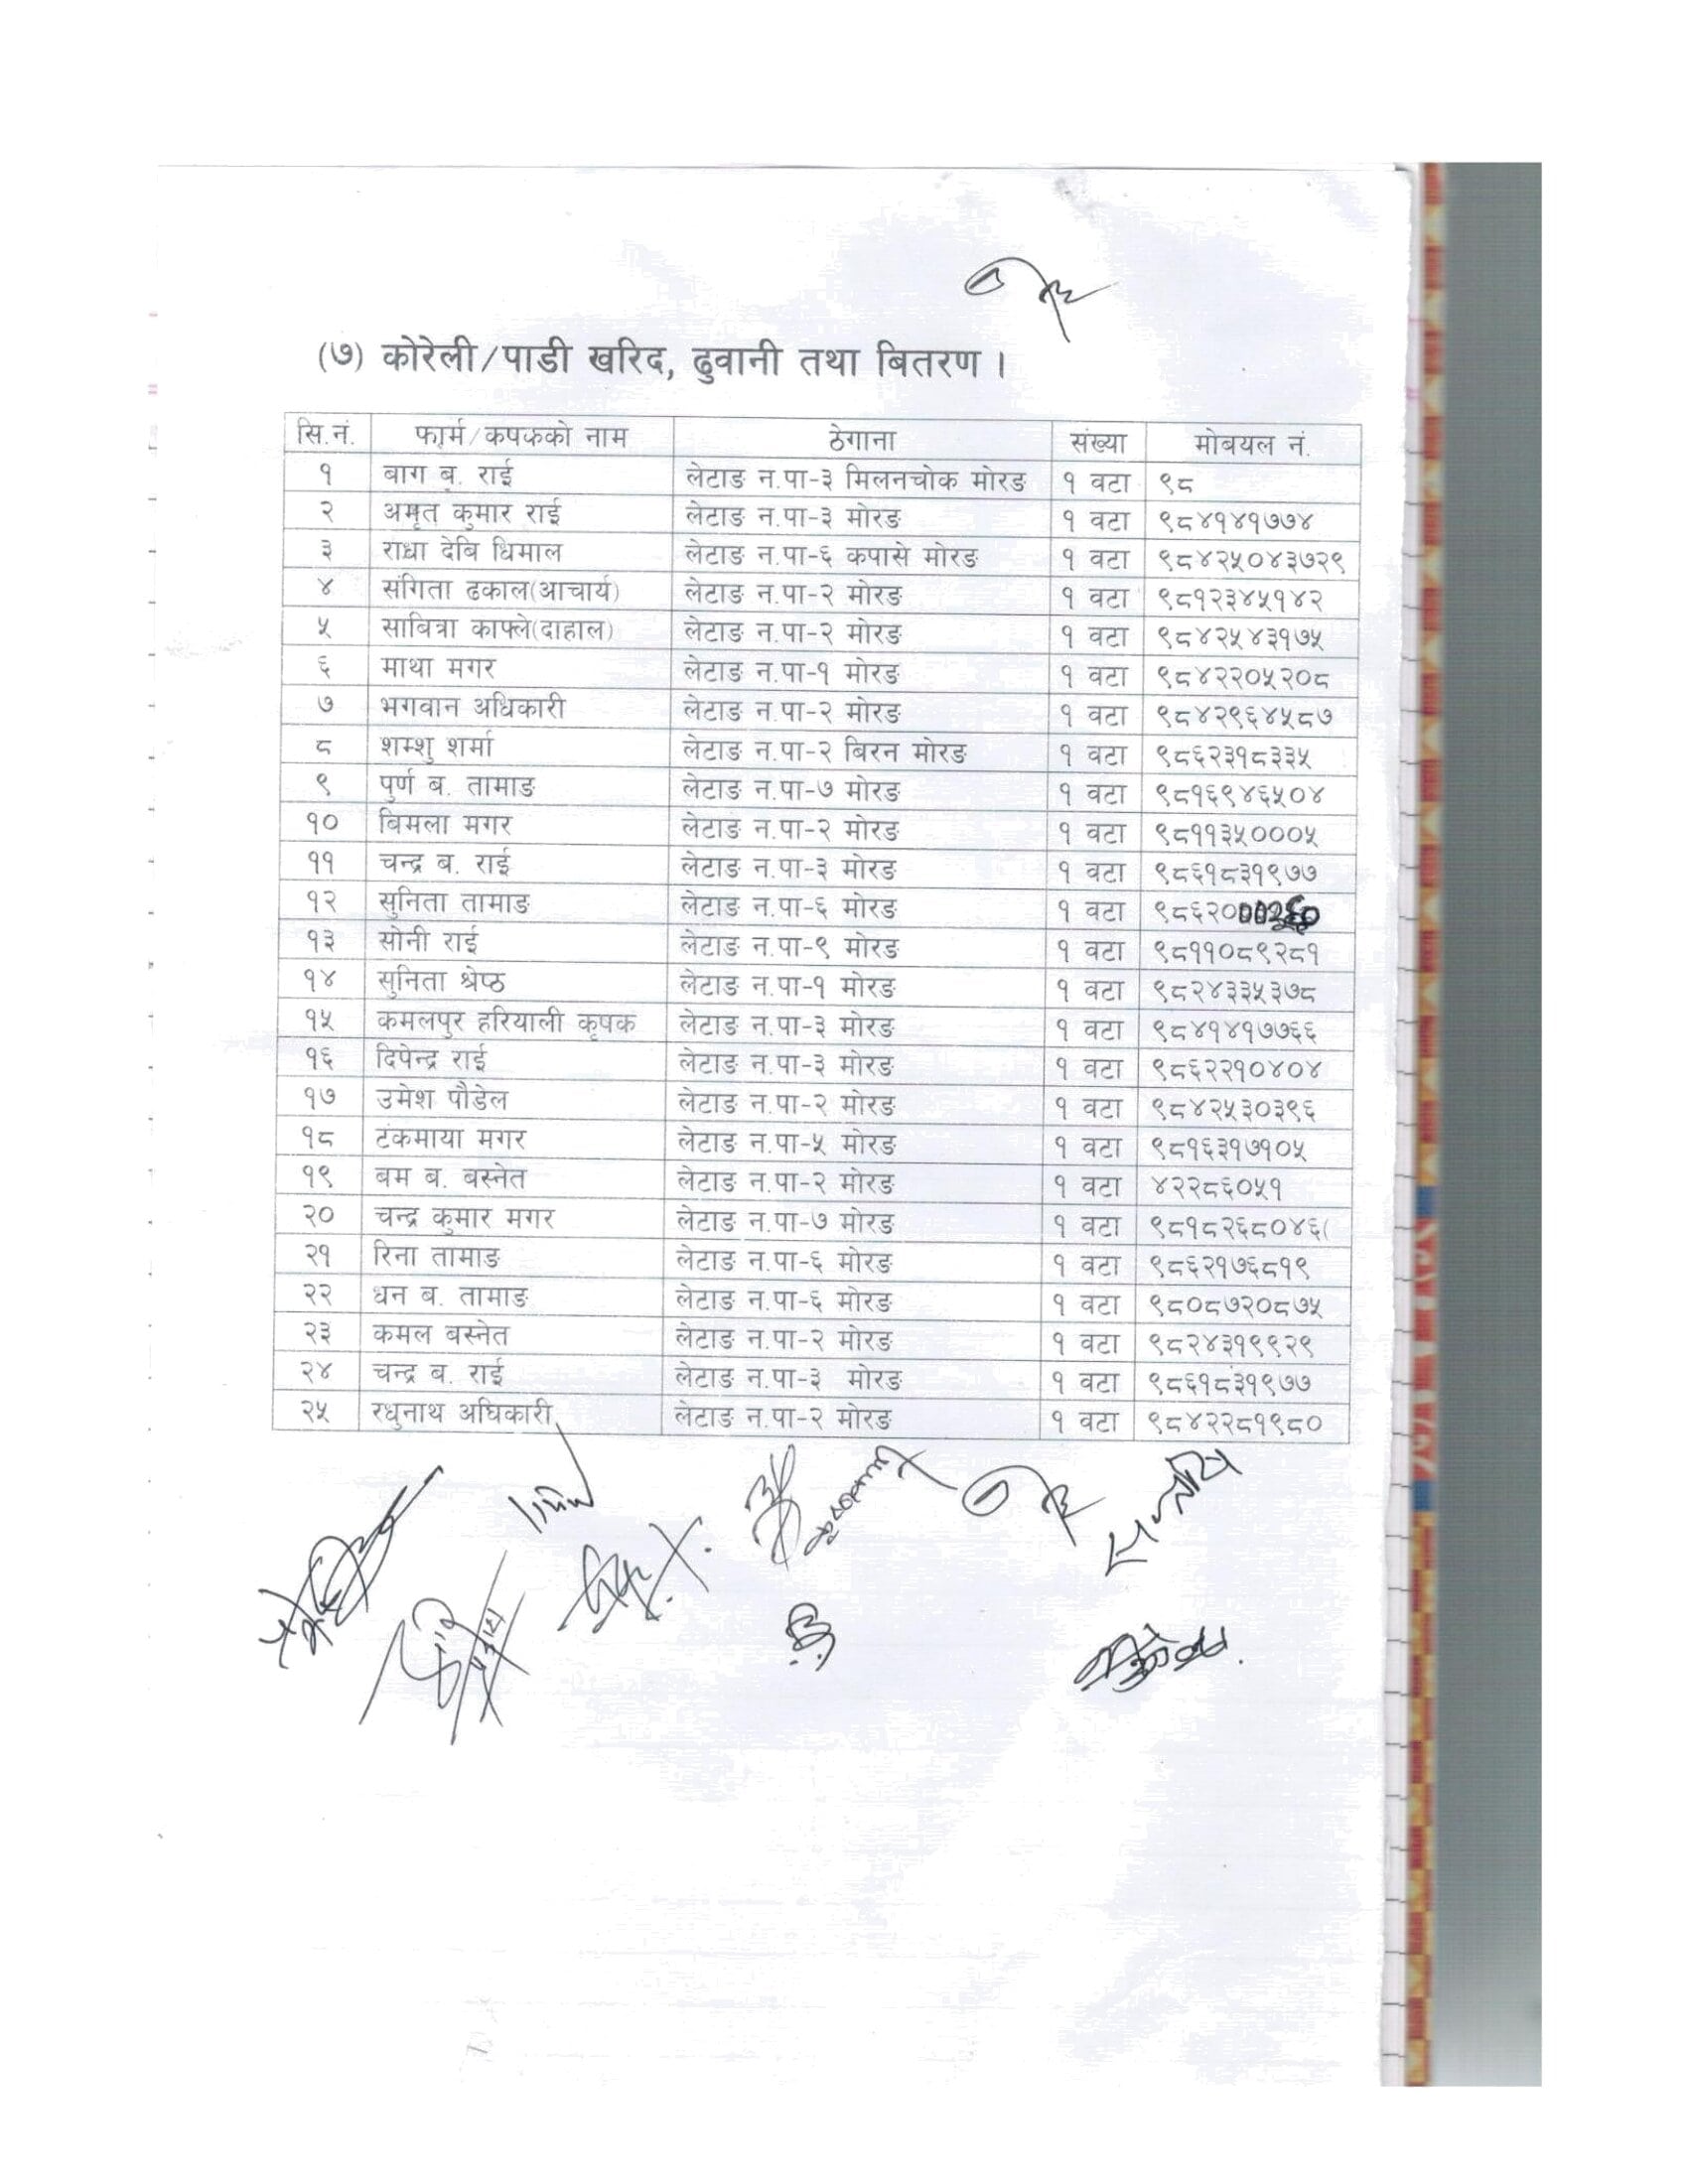 (७) कोरेली/पाडी खरिद, ढुवानी तथा बितरण ।
सि.नं. फार्म/कृषकको नाम ठेगाना संख्या मोबयल नं.
१ बाग ब. राई लेटाङ न.पा-३ मिलनचोक मोरङ १ वटा ९८
२ अमृत कुमार राई लेटाङ न.पा-३ मोरङ १ वटा ९८४१४१७७४
३ राधा देबि धिमाल लेटाङ न.पा-६ कपासे मोरङ १ वटा ९८४२५०४३७२९
४ संगिता ढकाल(आचार्य) लेटाङ न.पा-२ मोरङ १ वटा ९८१२३४५१४२
५ साबित्रा काफ्ले(दाहाल) लेटाङ न.पा-२ मोरङ १ वटा ९८४२५४३१७५
६ माथा मगर लेटाङ न.पा-१ मोरङ १ वटा ९८४२२०५२०८
७ भगवान अधिकारी लेटाङ न.पा-२ मोरङ १ वटा ९८४२९६४५८७
८ शम्शु शर्मा लेटाङ न.पा-२ बिरन मोरङ १ वटा ९८६२३१८३३५
९ पुर्ण ब. तामाङ लेटाङ न.पा-७ मोरङ १ वटा ९८१६९४६५०४
१० बिमला मगर लेटाङ न.पा-२ मोरङ १ वटा ९८११३५०००५
११ चन्द्र ब. राई लेटाङ न.पा-३ मोरङ १ वटा ९८६१८३१९७७
१२ सुनिता तामाङ लेटाङ न.पा-६ मोरङ १ वटा
१३ सोनी राई लेटाङ न.पा-९ मोरङ १ वटा ९८११०८९२८१
१४ सुनिता श्रेष्ठ लेटाङ न.पा-१ मोरङ १ वटा ९८२४३३५३७८
१५ कमलपुर हरियाली कृषक लेटाङ न.पा-३ मोरङ १ वटा ९८४१४१७७६६
१६ दिपेन्द्र राई लेटाङ न.पा-३ मोरङ १ वटा ९८६२२१०४०४
१७ उमेश पौडेल लेटाङ न.पा-२ मोरङ १ वटा ९८४२५३०३९६
१८ टंकमाया मगर लेटाङ न.पा-५ मोरङ १ वटा ९८१६३१७१०५
१९ बम ब. बस्नेत लेटाङ न.पा-२ मोरङ १ वटा ४२२८६०५१
२० चन्द्र कुमार मगर लेटाङ न.पा-७ मोरङ १ वटा ९८१८२६८०४६(
२१ रिना तामाङ लेटाङ न.पा-६ मोरङ १ वटा ९८६२१७६८१९
२२ धन ब. तामाङ लेटाङ न.पा-६ मोरङ १ वटा ९८०८७२०८७५
२३ कमल बस्नेत लेटाङ न.पा-२ मोरङ १ वटा ९८२४३१९९२९
२४ चन्द्र ब. राई लेटाङ न.पा-३ मोरङ १ वटा ९८६१८३१९७७
२५ रघुनाथ अधिकारी लेटाङ न.पा-२ मोरङ १ वटा ९८४२२८१९८०